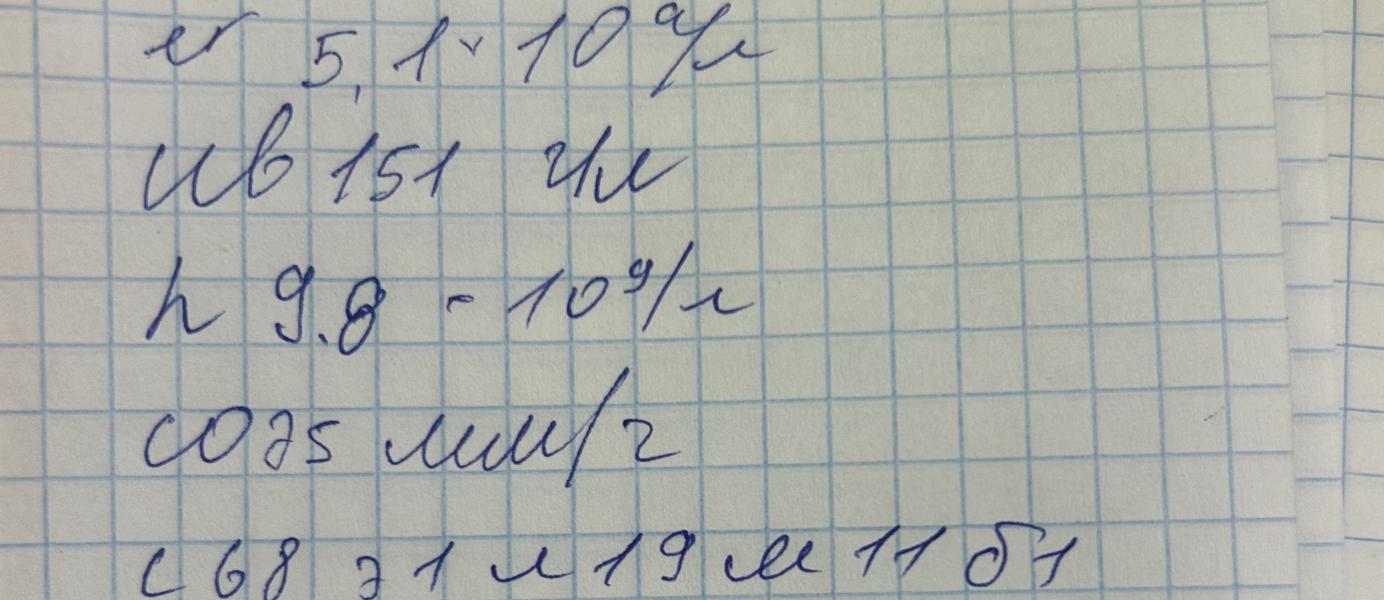 er 5,1 · 10⁹/л
Hb 151 г/л
L 9.8 · 10⁹/л
СОЭ 5 мм/г
с 68 э 1 л 19 м 11 б 1